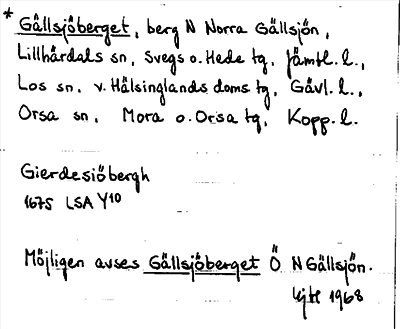 * Gällsjöberget, berg N Norra Gällsjön,
Lillhärdals sn, Svegs o. Hede tg, Jämtl. l.,
Los sn, v. Hälsinglands doms tg, Gävl. l.,
Orsa sn, Mora o. Orsa tg, Kopp. l.
Gierdesiöbergh
1675 LSA Y10
Möjligen avses Gällsjöberget Ö N Gällsjön.
1968